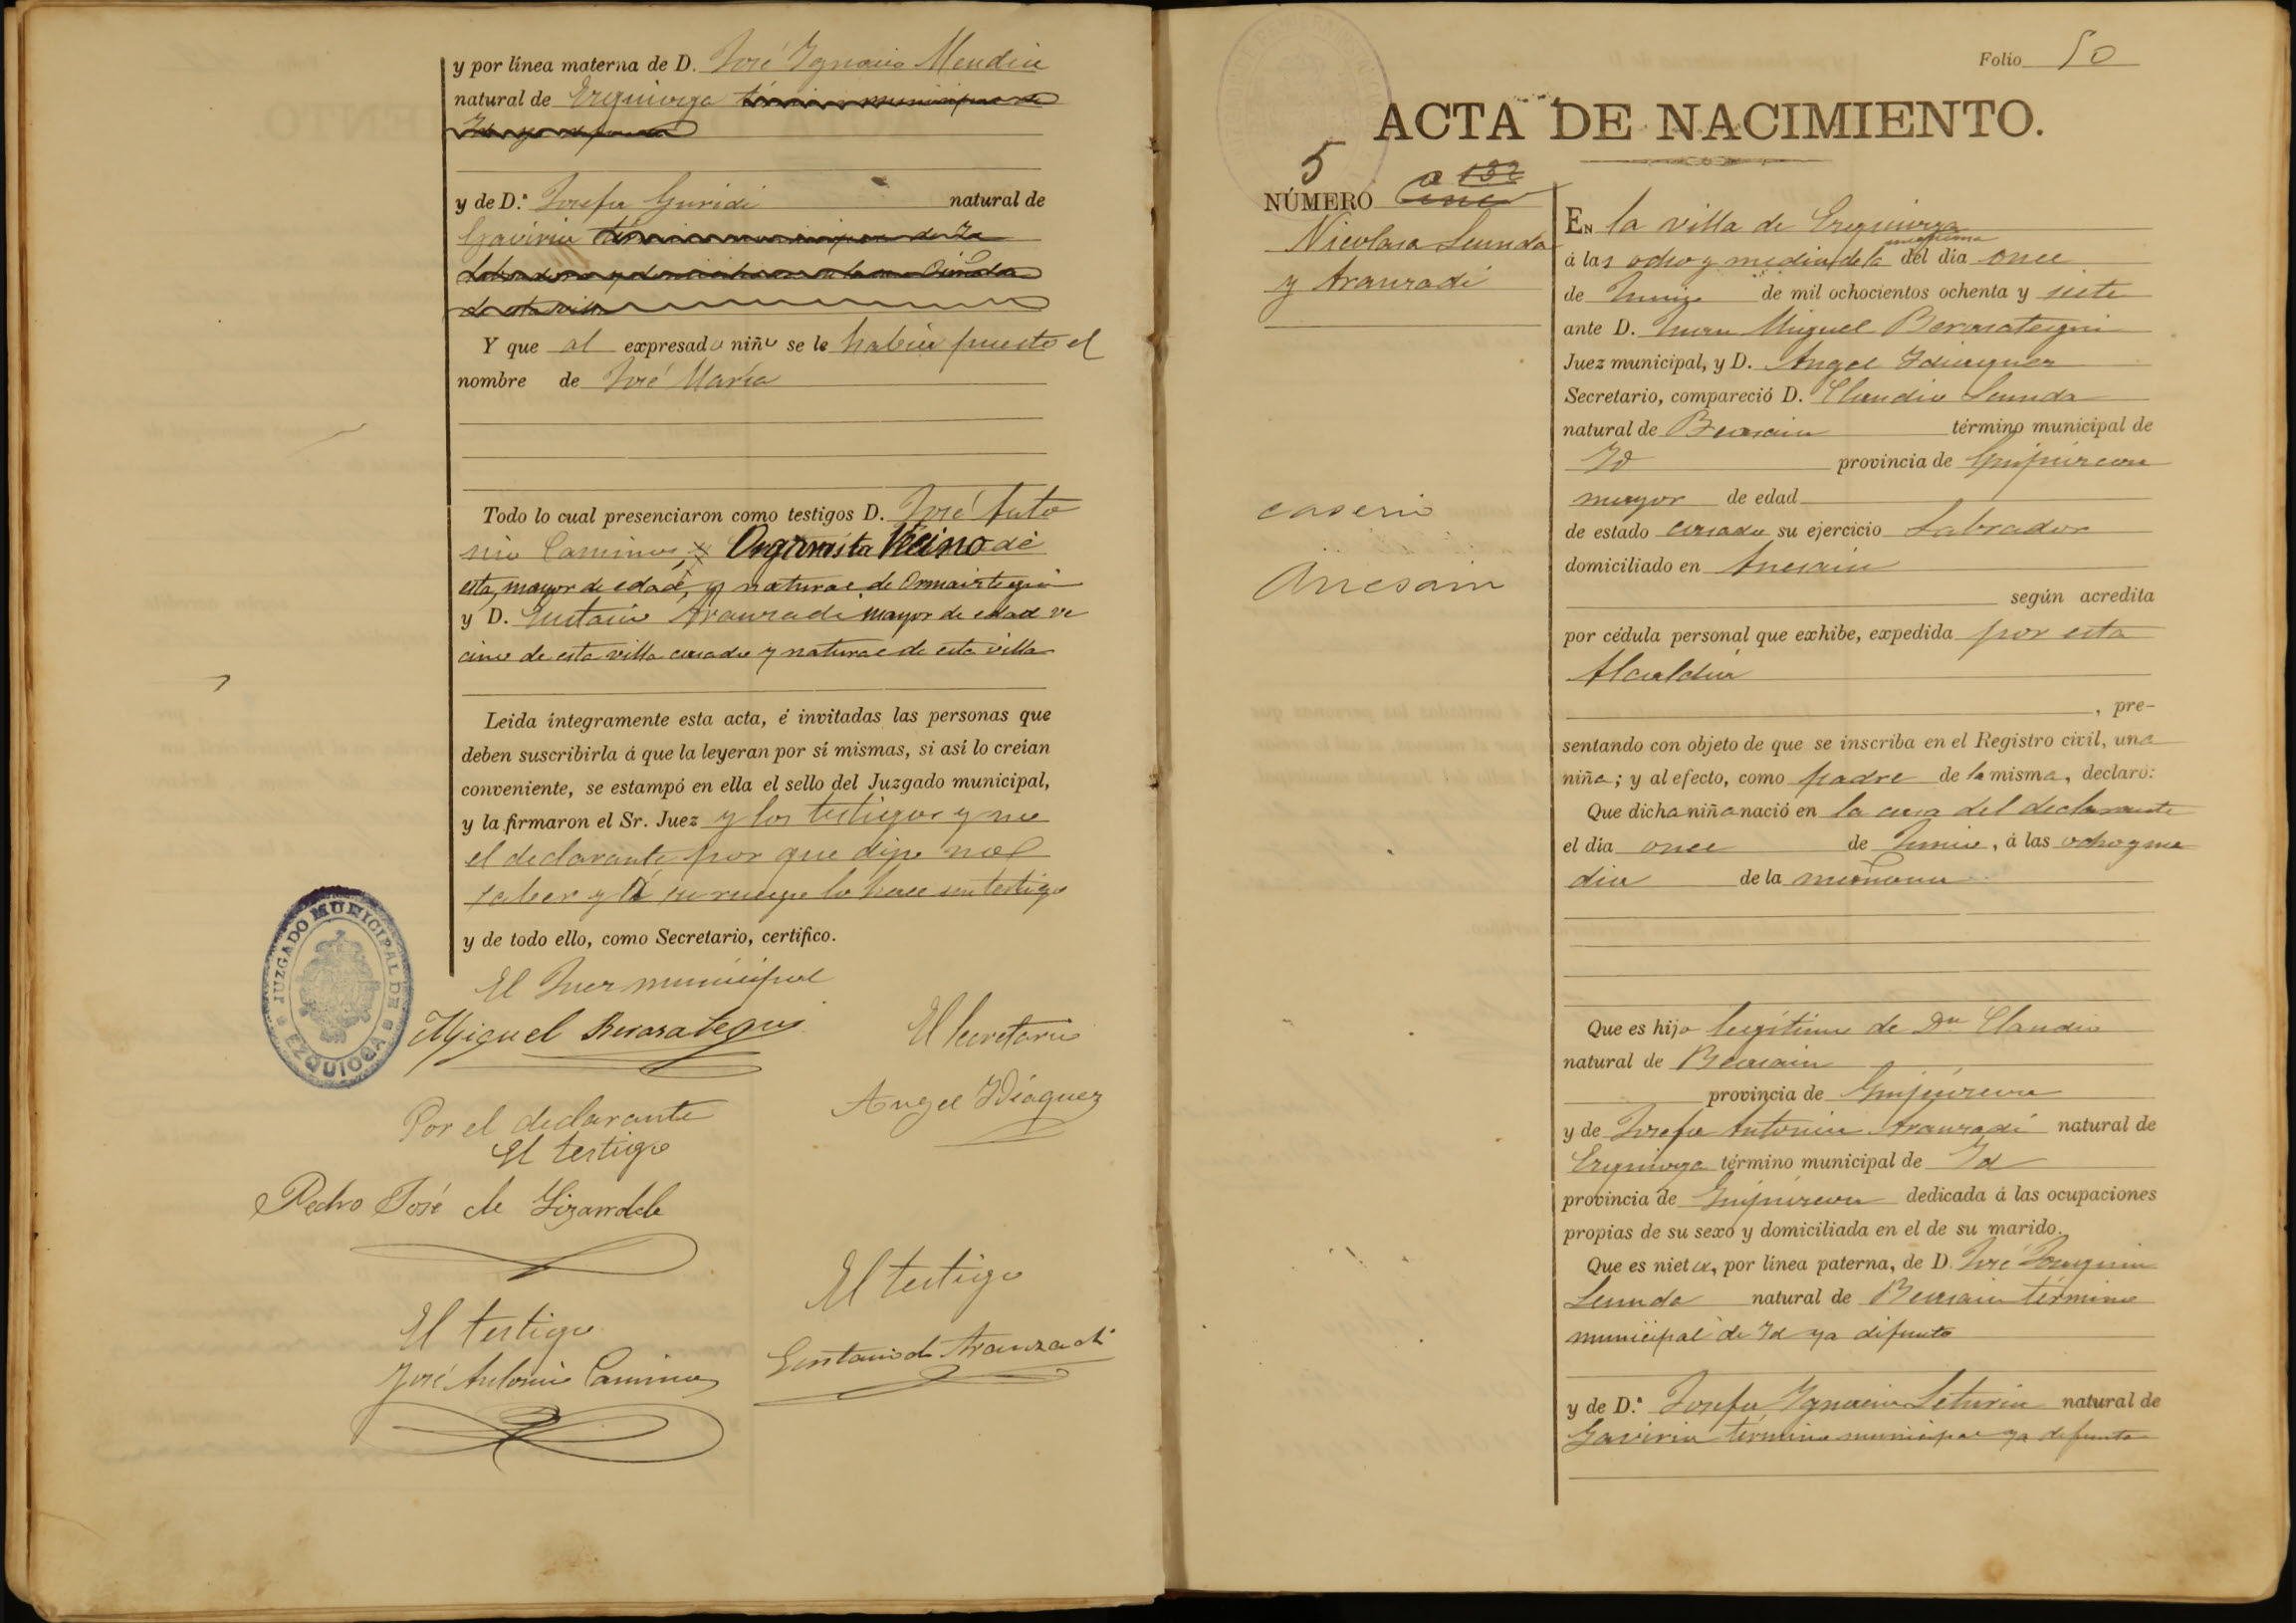 y por línea materna de D. José Ygnacio Mendia
natural de Ezquioga término municipal de
Id ya difunto
y de D.ª Josefa Guridi natural de
Gaviria término municipal de Id
de esta villa
Y que al expresado niño se le había puesto el
nombre de José María
Todo lo cual presenciaron como testigos D. José Anto
nio Caminos, Organista Vecino de
esta, mayor de edad, y natural de Ormaiztegui
y D. Eustasio Aranzadi mayor de edad ve
cino de esta villa casado y natural de esta villa
Leida íntegramente esta acta, é invitadas las personas que
deben suscribirla á que la leyeran por sí mismas, si así lo creían
conveniente, se estampó en ella el sello del Juzgado municipal,
y la firmaron el Sr. Juez y los testigos y no
el declarante por que dijo no
saber y á su ruego lo hace un testigo
y de todo ello, como Secretario, certifico.
JUZGADO MUNICIPAL DE EZQUIOGA
El Juez municipal
Miguel Berasategui
El Secretario
Angel Ydiaquez
Por el declarante
El testigo
Pedro José de Lizarralde
El testigo
José Antonio Caminos
El testigo
Eustasio de Aranzadi
Folio 50
ACTA DE NACIMIENTO.
5
a 132
NÚMERO Cinco
Nicolasa Leunda
y Aranzadi
caserio
Anesain
EN la villa de Ezquioga
mañana
á las ocho y media de la del dia once
de Junio de mil ochocientos ochenta y siete
ante D. Juan Miguel Berasategui
Juez municipal, y D. Angel Ydiaquez
Secretario, compareció D. Claudio Leunda
natural de Beasain término municipal de
Id provincia de Guipúzcoa
mayor de edad
de estado casado su ejercicio Labrador
domiciliado en Anesain
según acredita
por cédula personal que exhibe, expedida por esta
Alcaldia
, pre-
sentando con objeto de que se inscriba en el Registro civil, una
niña; y al efecto, como padre de la misma, declaró:
Que dicha niña nació en la casa del declarante
el dia once de Junio, á las ocho y me
dia de la mañana
Que es hija legitima de Dn Claudio
natural de Beasain
provincia de Guipúzcoa
y de Josefa Antonia Aranzadi natural de
Ezquioga término municipal de Id
provincia de Guipúzcoa dedicada á las ocupaciones
propias de su sexo y domiciliada en el de su marido.
Que es nieta, por línea paterna, de D. José Joaquin
Leunda natural de Beasain término
municipal de Id ya difunto
y de D.ª Josefa Ygnacia Leturia natural de
Gaviria término municipal ya difunta